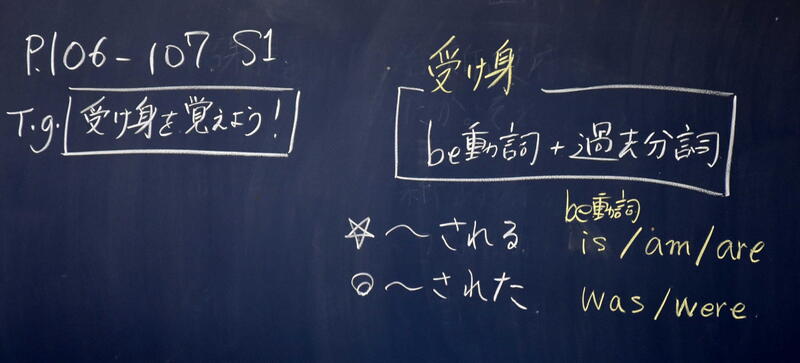 P.106-107 S1
T.g. 受け身を覚えよう!
受け身
be動詞 + 過去分詞
be動詞
☆〜される is/am/are
◎〜された was/were